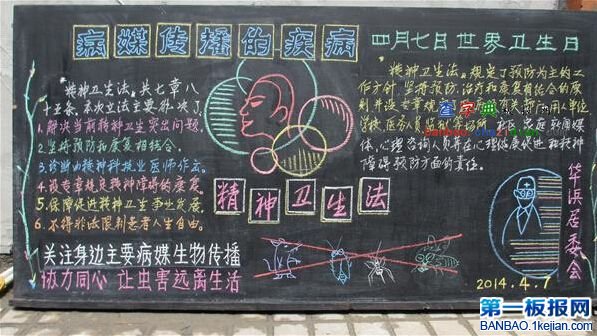 病媒传播的疾病
四月七日世界卫生日
精神卫生法,共七章八
十五条.本次立法主要解决了
1.解决当前精神卫生突出问题.
2.坚持预防和康复相结合.
3.诊断由精神科执业医师作出.
4.设专章规定精神障碍的康复.
5.保障促进精神卫生事业发展.
6.不得非法限制患者人生自由.
关注身边主要病媒生物传播
协力同心 让虫害远离生活
精神卫生法
精神卫生法,规定了预防为主的工
作方针,坚持预防、治疗和康复相结合的原
学校,医务人员
社区,家庭,新闻媒
体,心理咨询人员并在心理健康促进和精神
障碍预防方面的责任.
华浜居委会
2014.4.7
第一板报网
BANBAO.1kejian.com